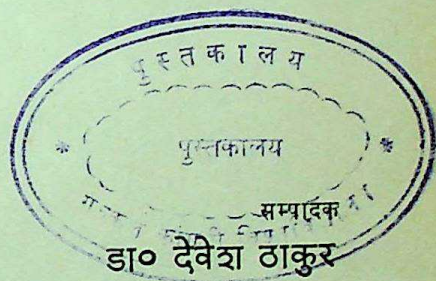 पुस्तकालय
पुस्तकालय
सम्पादक
डा० देवेश ठाकुर